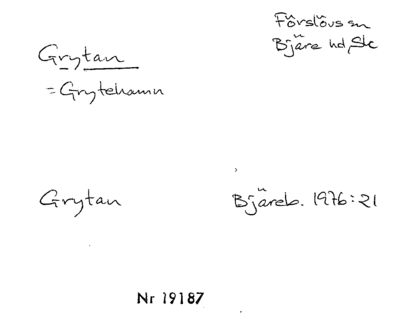 Grytan
Förslövs sn
Bjäre hd, Sk
= Grytehamn
Grytan
Bjäreb. 1976:21
Nr 19187